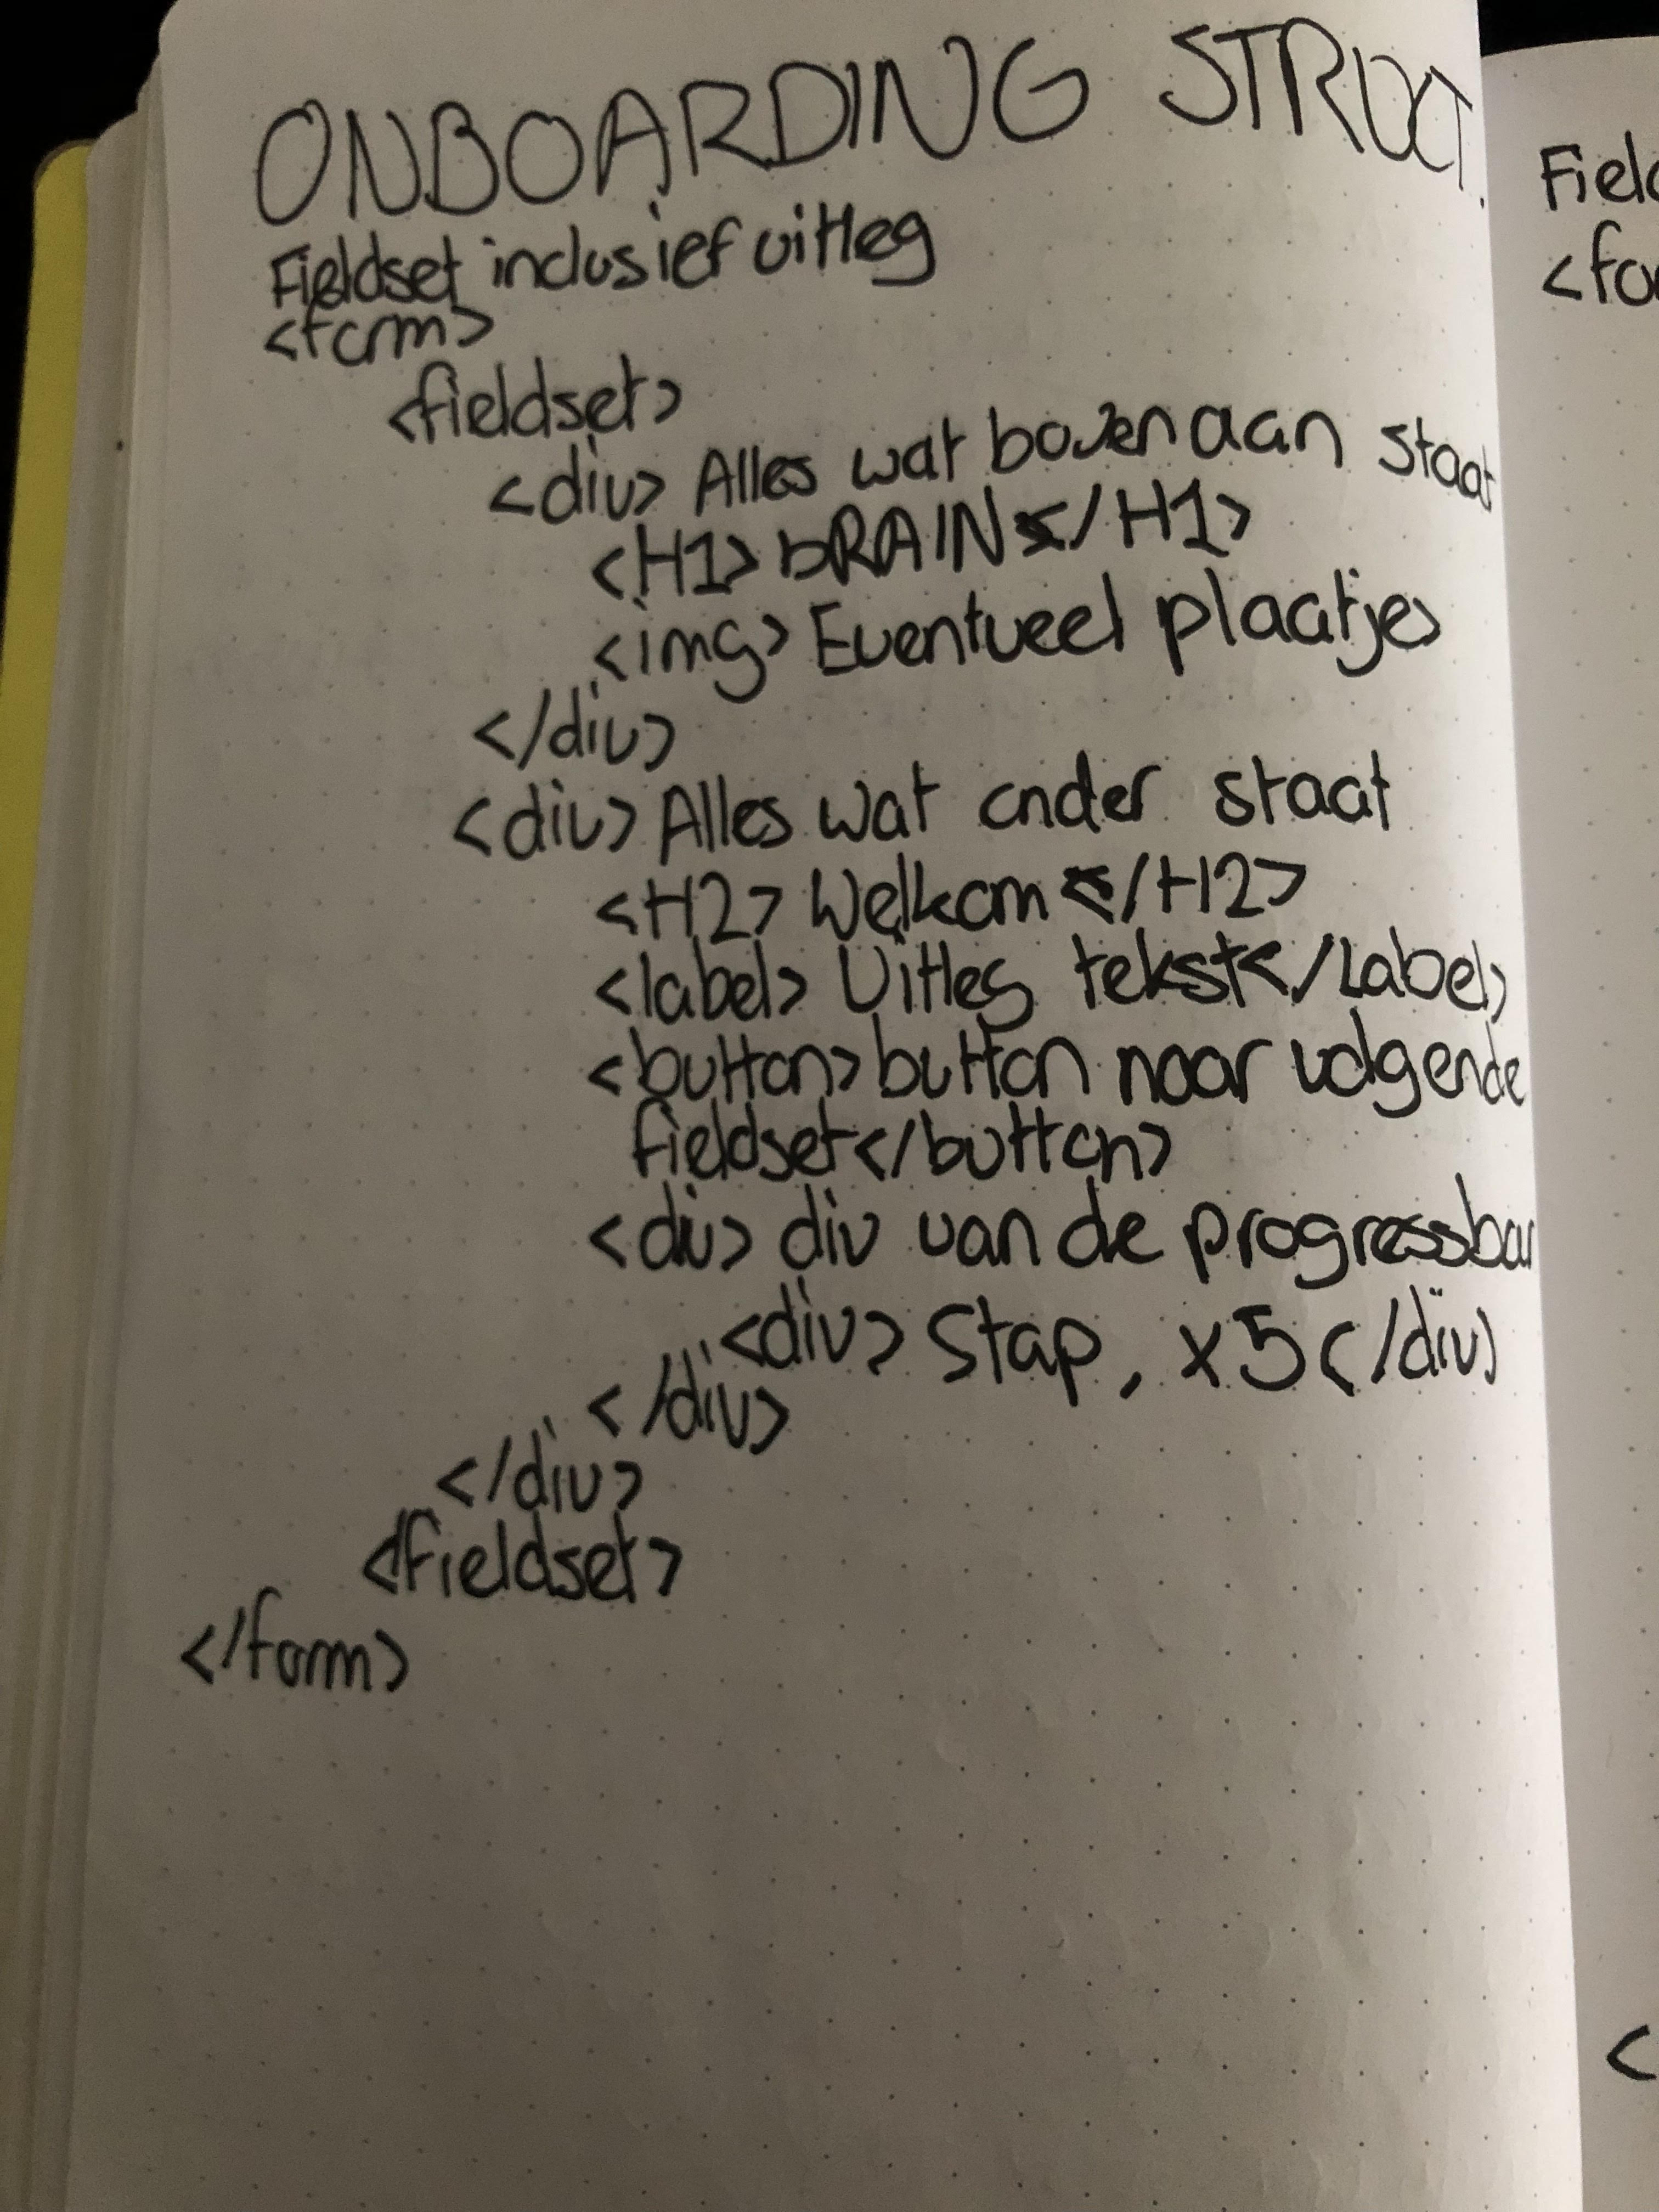 ONBOARDING STRUCT.
Fieldset inclusief uitleg
<form>
<fieldset>
<div> Alles wat bovenaan staat
<H1> bRAIN </H1>
<img> Eventueel plaatje
</div>
<div> Alles wat onder staat
<H2> Welkom </H2>
<label> Uitleg tekst</Label>
<button> button naar volgende
fieldset</button>
<div> div van de progressbar
<div> Stap, x5 </div>
</div>
</div>
<fieldset>
</form>
<fo
<